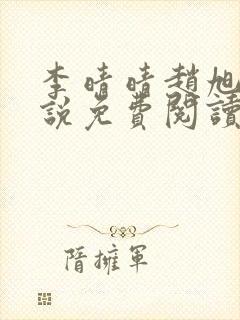 李晴晴趙旭
說免費閱讀
隋擁軍